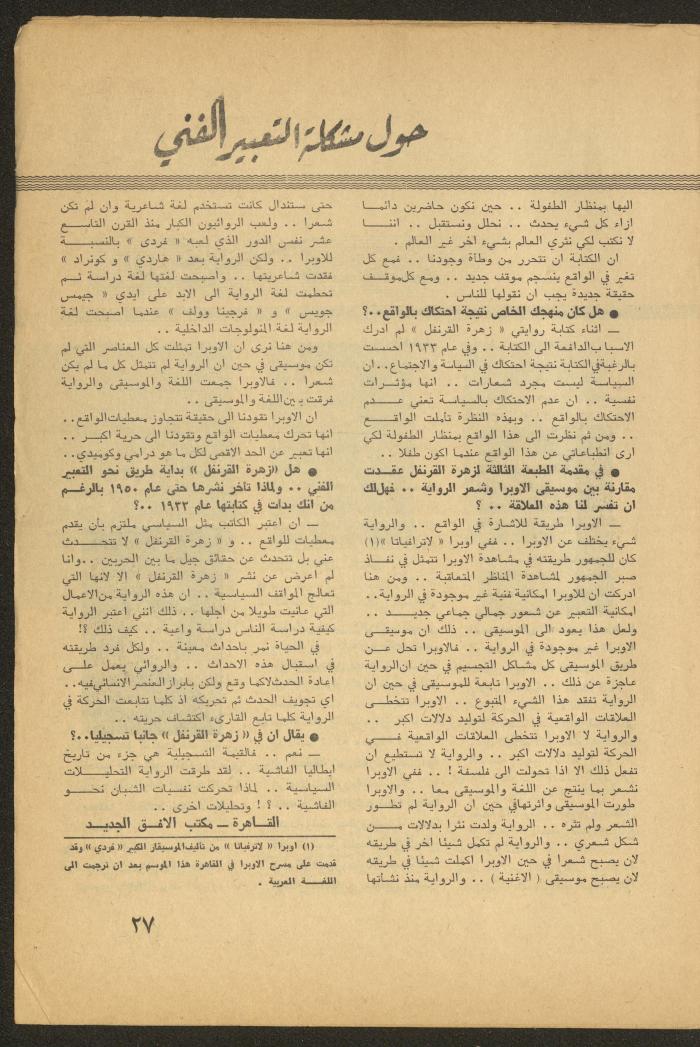 حول مشكلة التعبير الفني
اليها بمنظار الطفولة . . حين نكون حاضرين دائما
ازاء كل شيء يحدث . . نحلل ونستقبل . . اننا
لا نكتب لكي نثري العالم بشيء اخر غير العالم .
ان الكتابة ان تتحرر من وطأة وجودنا . . فمع كل
تغير في الواقع ينسجم موقف جديد . . ومع كل موقف
حقيقة جديدة يجب ان نقولها للناس .
● هل كان منهجك الخاص نتيجة احتكاك بالواقع..؟
ــ اثناء كتابة روايتي « زهرة القرنفل » لم ادرك
الاسباب الدافعة الى الكتابة . . وفي عام ١٩٣٣ احسست
بالرغبة في الكتابة نتيجة احتكاك في السياسة والاجتماع . . ان
السياسة ليست مجرد شعارات . . انها مؤثرات
نفسية . . ان عدم الاحتكاك بالسياسة تعني عدم
الاحتكاك بالواقع . . وبهذه النظرة تأملت الواقع
. . ومن ثم نظرت الى هذا الواقع بمنظار الطفولة لكي
ارى انطباعاتي عن هذا الواقع عندما اكون طفلا . .
● في مقدمة الطبعة الثالثة لزهرة القرنفل عقدت
مقارنة بين موسيقى الاوبرا وشعر الرواية . . فهل لك
ان تفسر لنا هذه العلاقة . . ؟
ــ الاوبرا طريقة للاشارة في الواقع . . والرواية
شيء يختلف عن الاوبرا . . ففي اوبرا « لاترافياتا »(١)
كان للجمهور طريقته في مشاهدة الاوبرا تتمثل في نفاذ
صبر الجمهور لمشاهدة المناظر المتعاقبة . . ومن هنا
ادركت ان للاوبرا امكانية فنية غير موجودة في الرواية..
امكانية التعبير عن شعور جمالي جماعي جديد . .
ولعل هذا يعود الى الموسيقى . . ذلك ان موسيقى
الاوبرا غير موجودة في الرواية . . فالاوبرا تحل عن
طريق الموسيقى كل مشاكل التجسيم في حين ان الرواية
عاجزة عن ذلك . . الاوبرا تابعة للموسيقى في حين ان
الرواية تفقد هذا الشيء المتبوع . . الاوبرا تتخطى
العلاقات الواقعية في الحركة لتوليد دلالات اكبر . .
والرواية لا الاوبرا تتخطى العلاقات الواقعية في
الحركة لتوليد دلالات اكبر . . والرواية لا تستطيع ان
تفعل ذلك الا اذا تحولت الى فلسفة ! . . ففي الاوبرا
نشعر بما ينتج عن اللغة والموسيقى معا . . والاوبرا
طورت الموسيقى واثرتها في حين ان الرواية لم تطور
الشعر ولم تثره . . الرواية ولدت نثرا بدلالات من
شكل شعري . . والرواية لم تكمل شيئا اخر في طريقه
لان يصبح شعرا في حين الاوبرا اكملت شيئا في طريقه
لان يصبح موسيقى ( الاغنية ) . . والرواية منذ نشأتها
حتى ستندال كانت تستخدم لغة شاعرية وان لم تكن
شعرا . . ولعب الروائيون الكبار منذ القرن التاسع
عشر نفس الدور الذي لعبه « فردي » بالنسبة
للاوبرا . . ولكن الرواية بعد « هاردي » و كونراد »
فقدت شاعريتها . . واصبحت لغتها لغة دراسة ثم
تحطمت لغة الرواية الى الابد على ايدي « جيمس
جويس » و « فرجينا وولف » عندما اصبحت لغة
الرواية لغة المنولوجات الداخلية . .
ومن هنا نرى ان الاوبرا تمثلت كل العناصر التي لم
تكن موسيقى في حين ان الرواية لم تتمثل كل ما لم يكن
شعرا . . فالاوبرا جمعت اللغة والموسيقى والرواية
فرقت بين اللغة والموسيقى . .
ان الاوبرا تقودنا الى حقيقة تتجاوز معطيات الواقع . .
انها تحرك معطيات الواقع وتقودنا الى حرية اكبر . .
انها تعبير عن الحد الاقصى لكل ما هو درامي وكوميدي . .
● هل «زهرة القرنفل » بداية طريق نحو التعبير
الفني . . ولماذا تأخر نشرها حتى عام ١٩٥٠ بالرغم
من انك بدأت في كتابتها عام ١٩٣٣ . . ؟
ــ ان اعتبر الكاتب مثل السياسي ملتزم بأن يقدم
معطيات للواقع . . و « زهرة القرنفل » لا تتحدث
عني بل تتحدث عن حقائق جيل ما بين الحربين . . وانا
لم اعرض عن نشر « زهرة القرنفل » الا لانها التي
تعالج المواقف السياسية . . ان هذه الرواية من الاعمال
التي عانيت طويلا من اجلها . . ذلك انني اعتبر الرواية
كيفية دراسة الناس دراسة واعية . . كيف ذلك ؟!
في الحياة نمر باحداث معينة . . ولكل فرد طريقته
في اسقبال هذه الاحداث . . والروائي يعمل على
اعادة الحدث لا كما وقع ولكن بابراز العنصر الانساني فيه . .
اي تجويف الحدث ثم تحريكه اذ كلما تتابعت الحركة في
الرواية كلما تابع القارىء اكتشاف حريته . .
● يقال ان في « زهرة القرنفل » جانبا تسجيليا..؟
ــ نعم . . فالقيمة التسجيلية هي جزء من تاريخ
ايطاليا الفاشية . . لقد طرقت الرواية التحليلات
السياسية . . لماذا تحركت نفسيات الشبان نحو
الفاشية . . ؟ ! وتحليلات اخرى . .
القاهرة ــ مكتب الافق الجديد
(١) اوبرا « لاترفياتا » من تأليف الموسيقار الكبير « فردي » وقد
قدمت على مسرح الاوبرا في القاهرة هذا الموسم بعد ان ترجمت الى
اللغة العربية .
٢٧